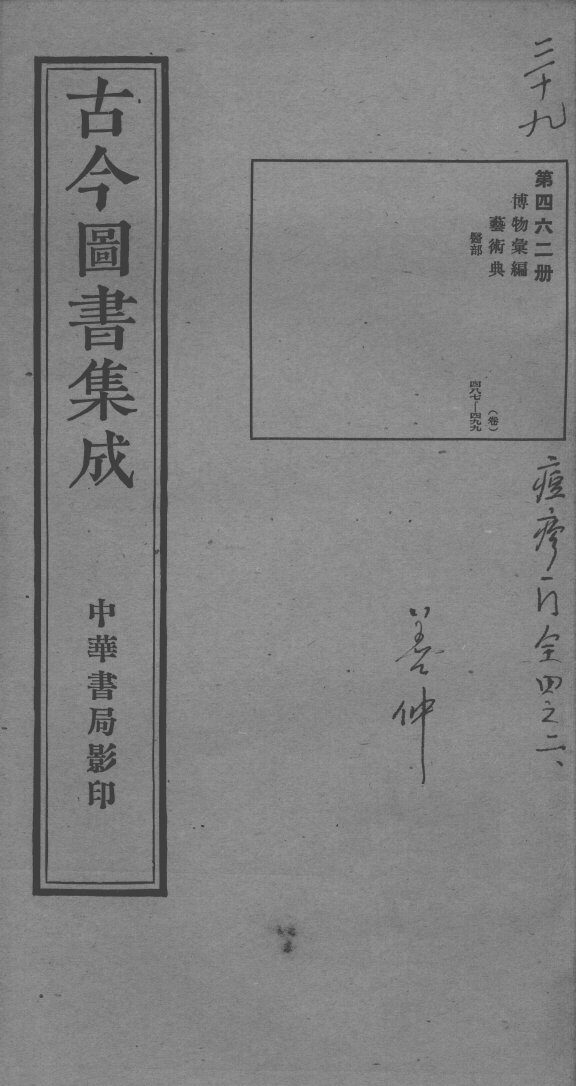 三十九
第四六二册
博物彙編
藝術典
醫部
(卷)
四八七—四九九
痘疹门全四之二、
善仲
古今圖書集成
中華書局影印